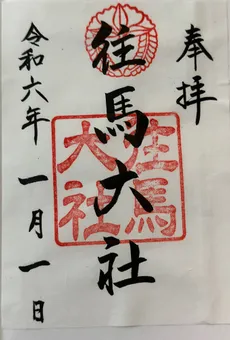 奉拝
往馬大社
往馬
大社
令和六年 一月一日